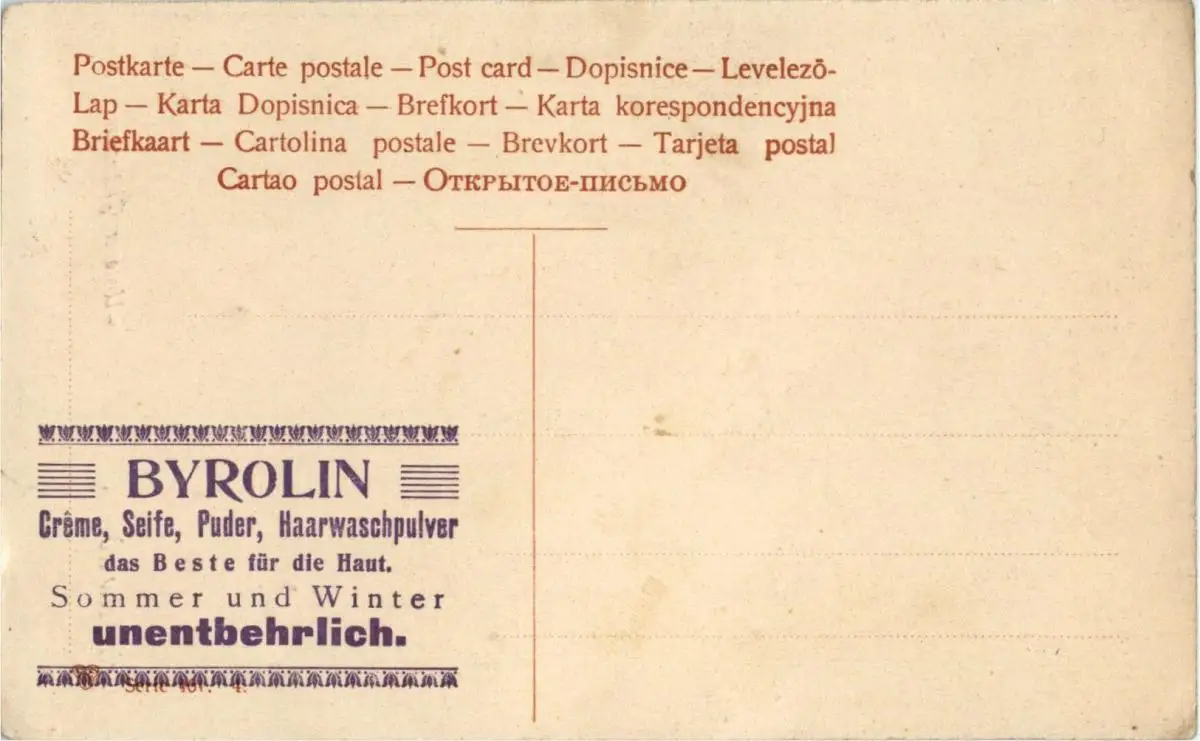 Postkarte — Carte postale — Post card — Dopisnice — Levelező-
Lap — Karta Dopisnica — Brefkort — Karta korespondencyjna
Briefkaart — Cartolina postale — Brevkort — Tarjeta postal
Cartao postal — Открытое-письмо
BYROLIN
Crême, Seife, Puder, Haarwaschpulver
das Beste für die Haut.
Sommer und Winter
unentbehrlich.
Serie